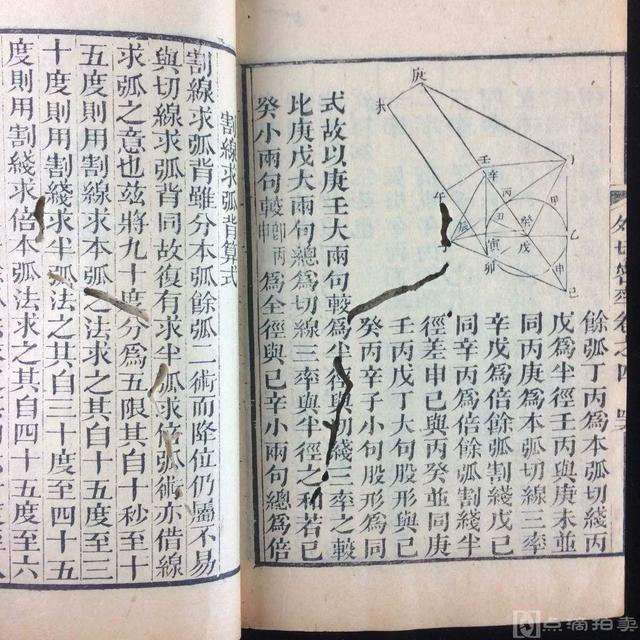 餘弧丁丙爲本弧切綫丙
戊爲半徑壬丙與庚未並
同丙庚爲本弧切線三率
辛戊爲倍餘弧割綫戊己
同辛丙爲倍餘弧割綫半
徑差申己與丙癸並同庚
壬丙戊丁大句股形與己
癸丙辛子小句股形爲同
式故以庚壬大兩句較爲半徑與切綫三率之較
比庚戊大兩句總爲切線三率與半徑之和若己
癸小兩句較 爲全徑與己辛小兩句總爲倍
割線求弧背算式
割線求弧背雖分本弧餘弧一術而降位仍屬不易
與切線求弧背同故復有求半弧求倍弧術亦借線
求弧之意也茲將九十度分爲五限其自十秒至十
五度則用割線求本弧法求之其自十五度至三
十度則用割綫求半弧法之其自三十度至四十五
度則用割綫求倍本弧法求之其自四十五度至六
庚
未
壬
辛
丙
甲
午
丑
癸
乙
寅
戊
卯
申
己
卷之四
点滴拍卖